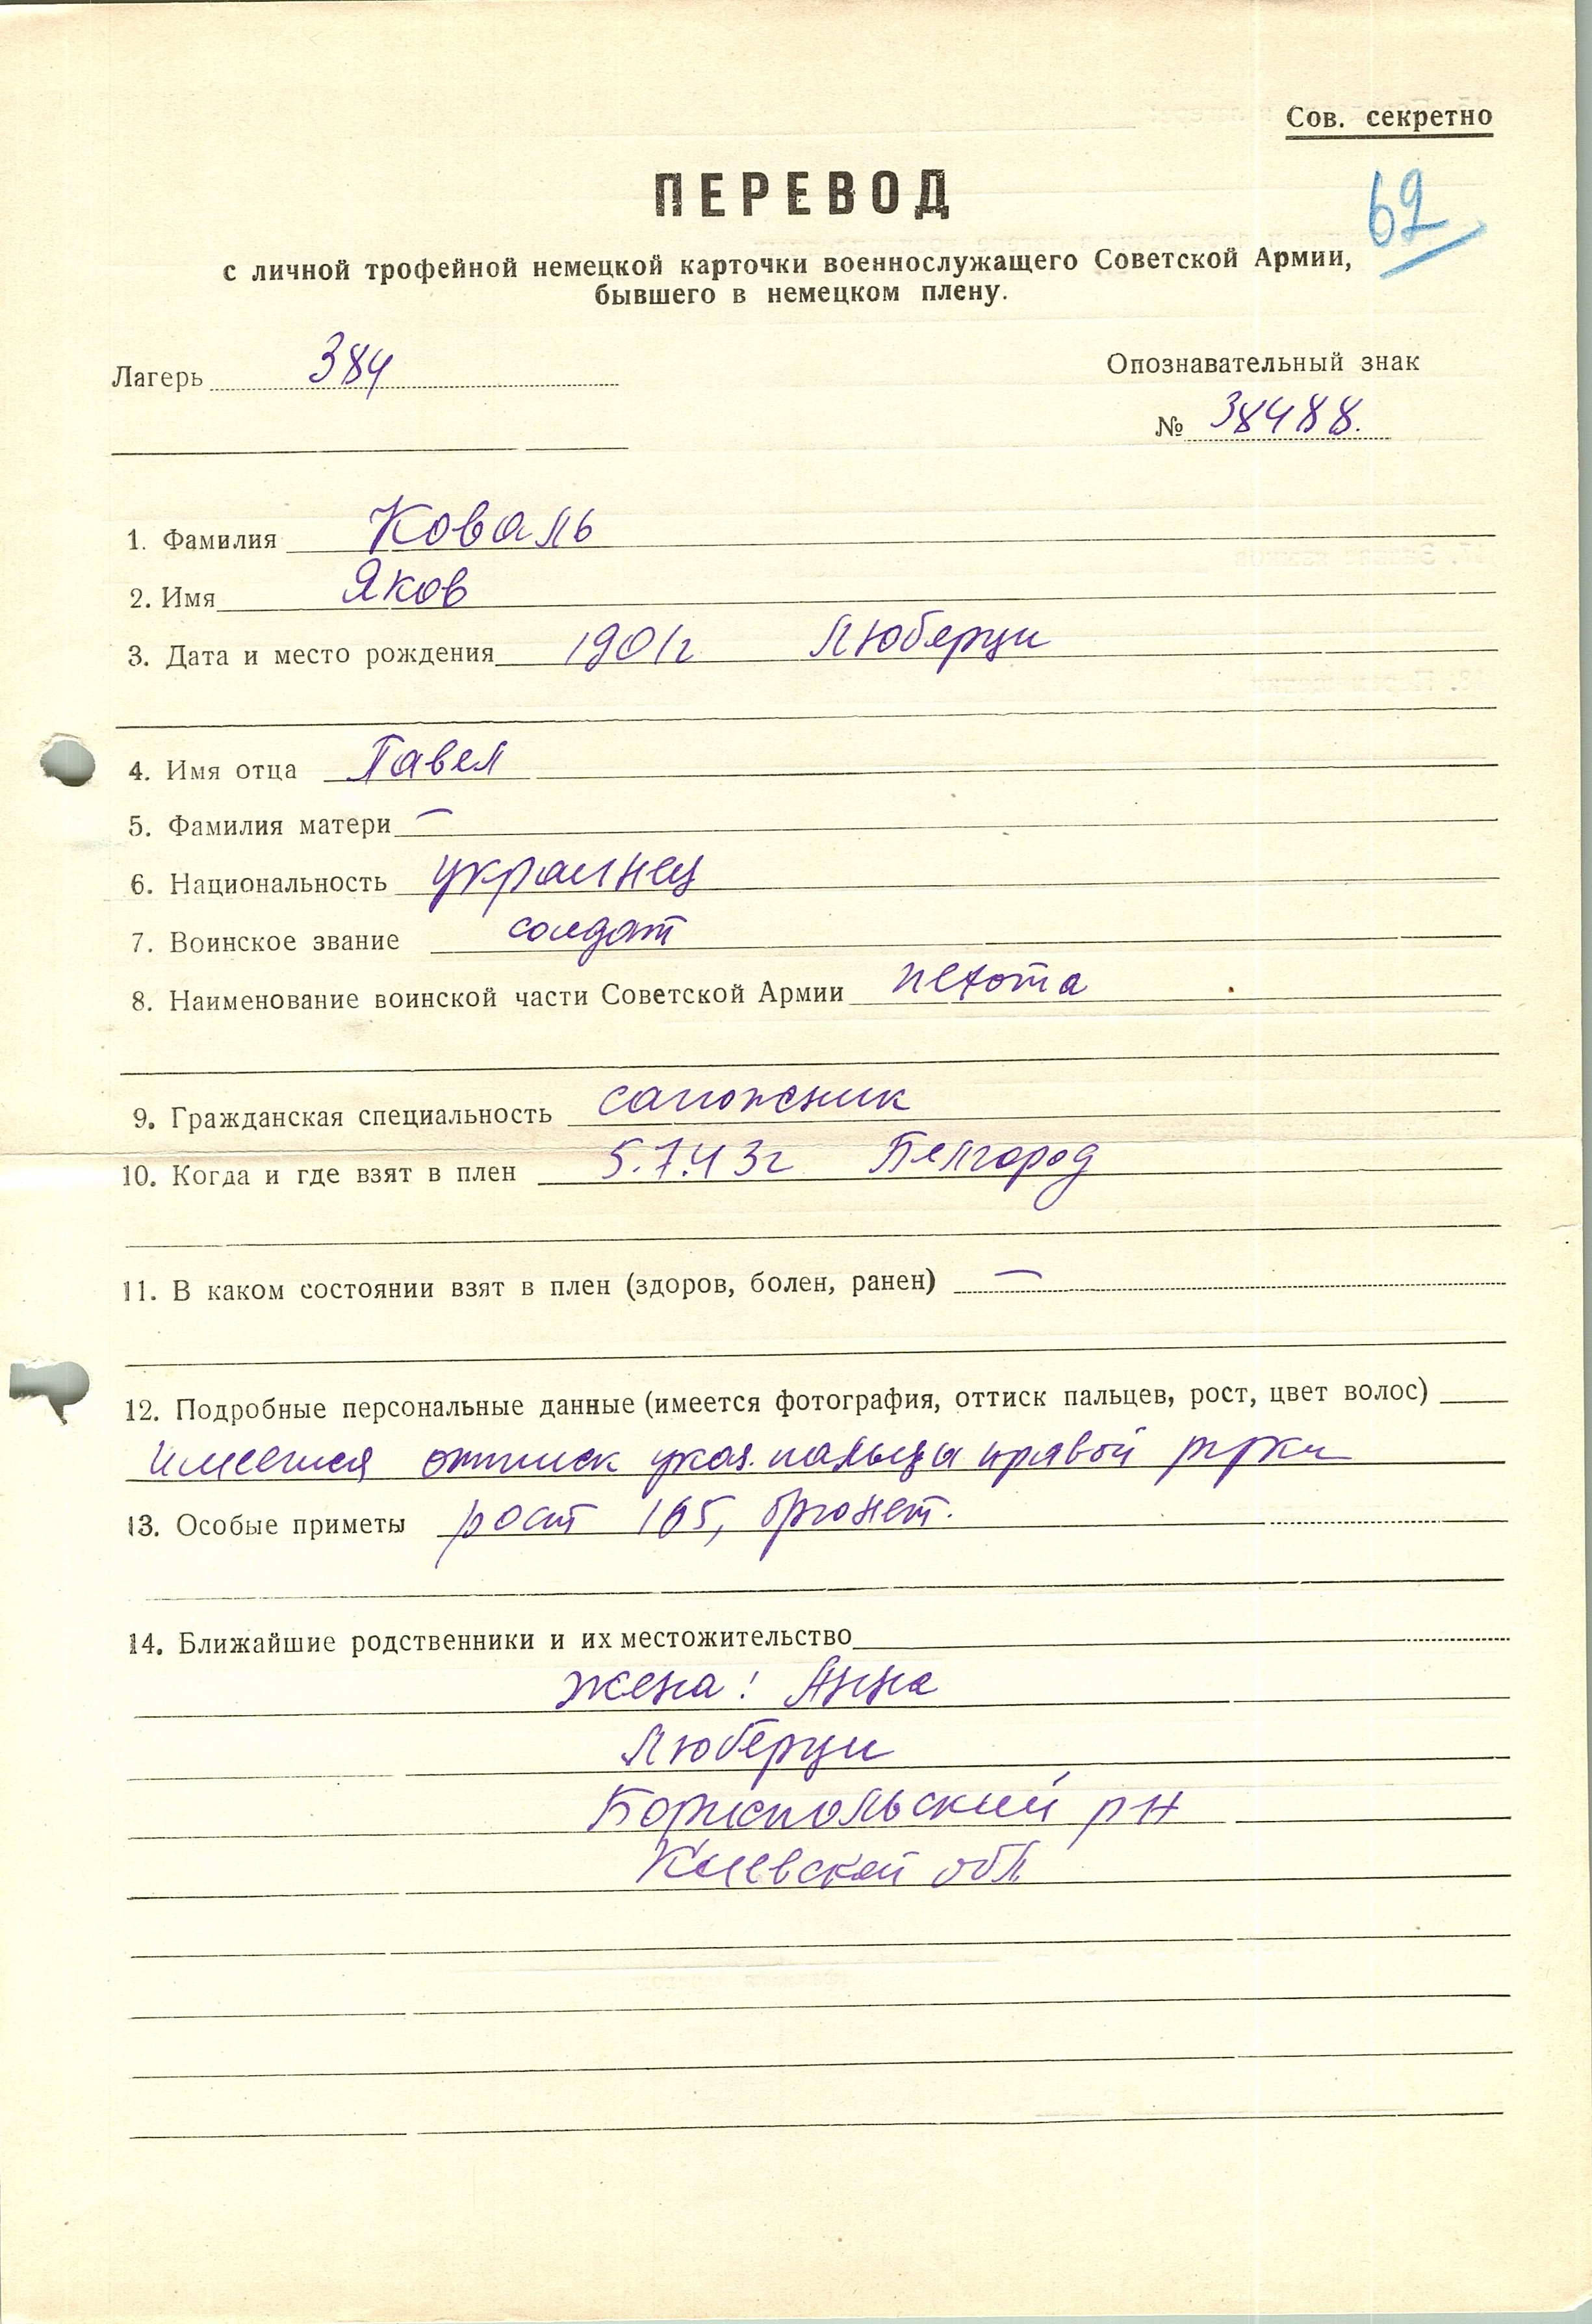 Сов. секретно
ПЕРЕВОД
62
с личной трофейной немецкой карточки военнослужащего Советской Армии,
бывшего в немецком плену.
Лагерь 384
Опознавательный знак
№ 38488.
1. Фамилия Коваль
2. Имя Яков
3. Дата и место рождения 1901г Люберци
4. Имя отца Павел
5. Фамилия матери —
6. Национальность украинец
7. Воинское звание солдат
8. Наименование воинской части Советской Армии пехота
9. Гражданская специальность сапожник
10. Когда и где взят в плен 5.7.43г Белгород
11. В каком состоянии взят в плен (здоров, болен, ранен) —
12. Подробные персональные данные (имеется фотография, оттиск пальцев, рост, цвет волос)
имеется оттиск указ. пальца правой руки
13. Особые приметы рост 165, брюнет.
14. Ближайшие родственники и их местожительство
жена: Анна
Люберци
Бориспольский рн
Киевской обл